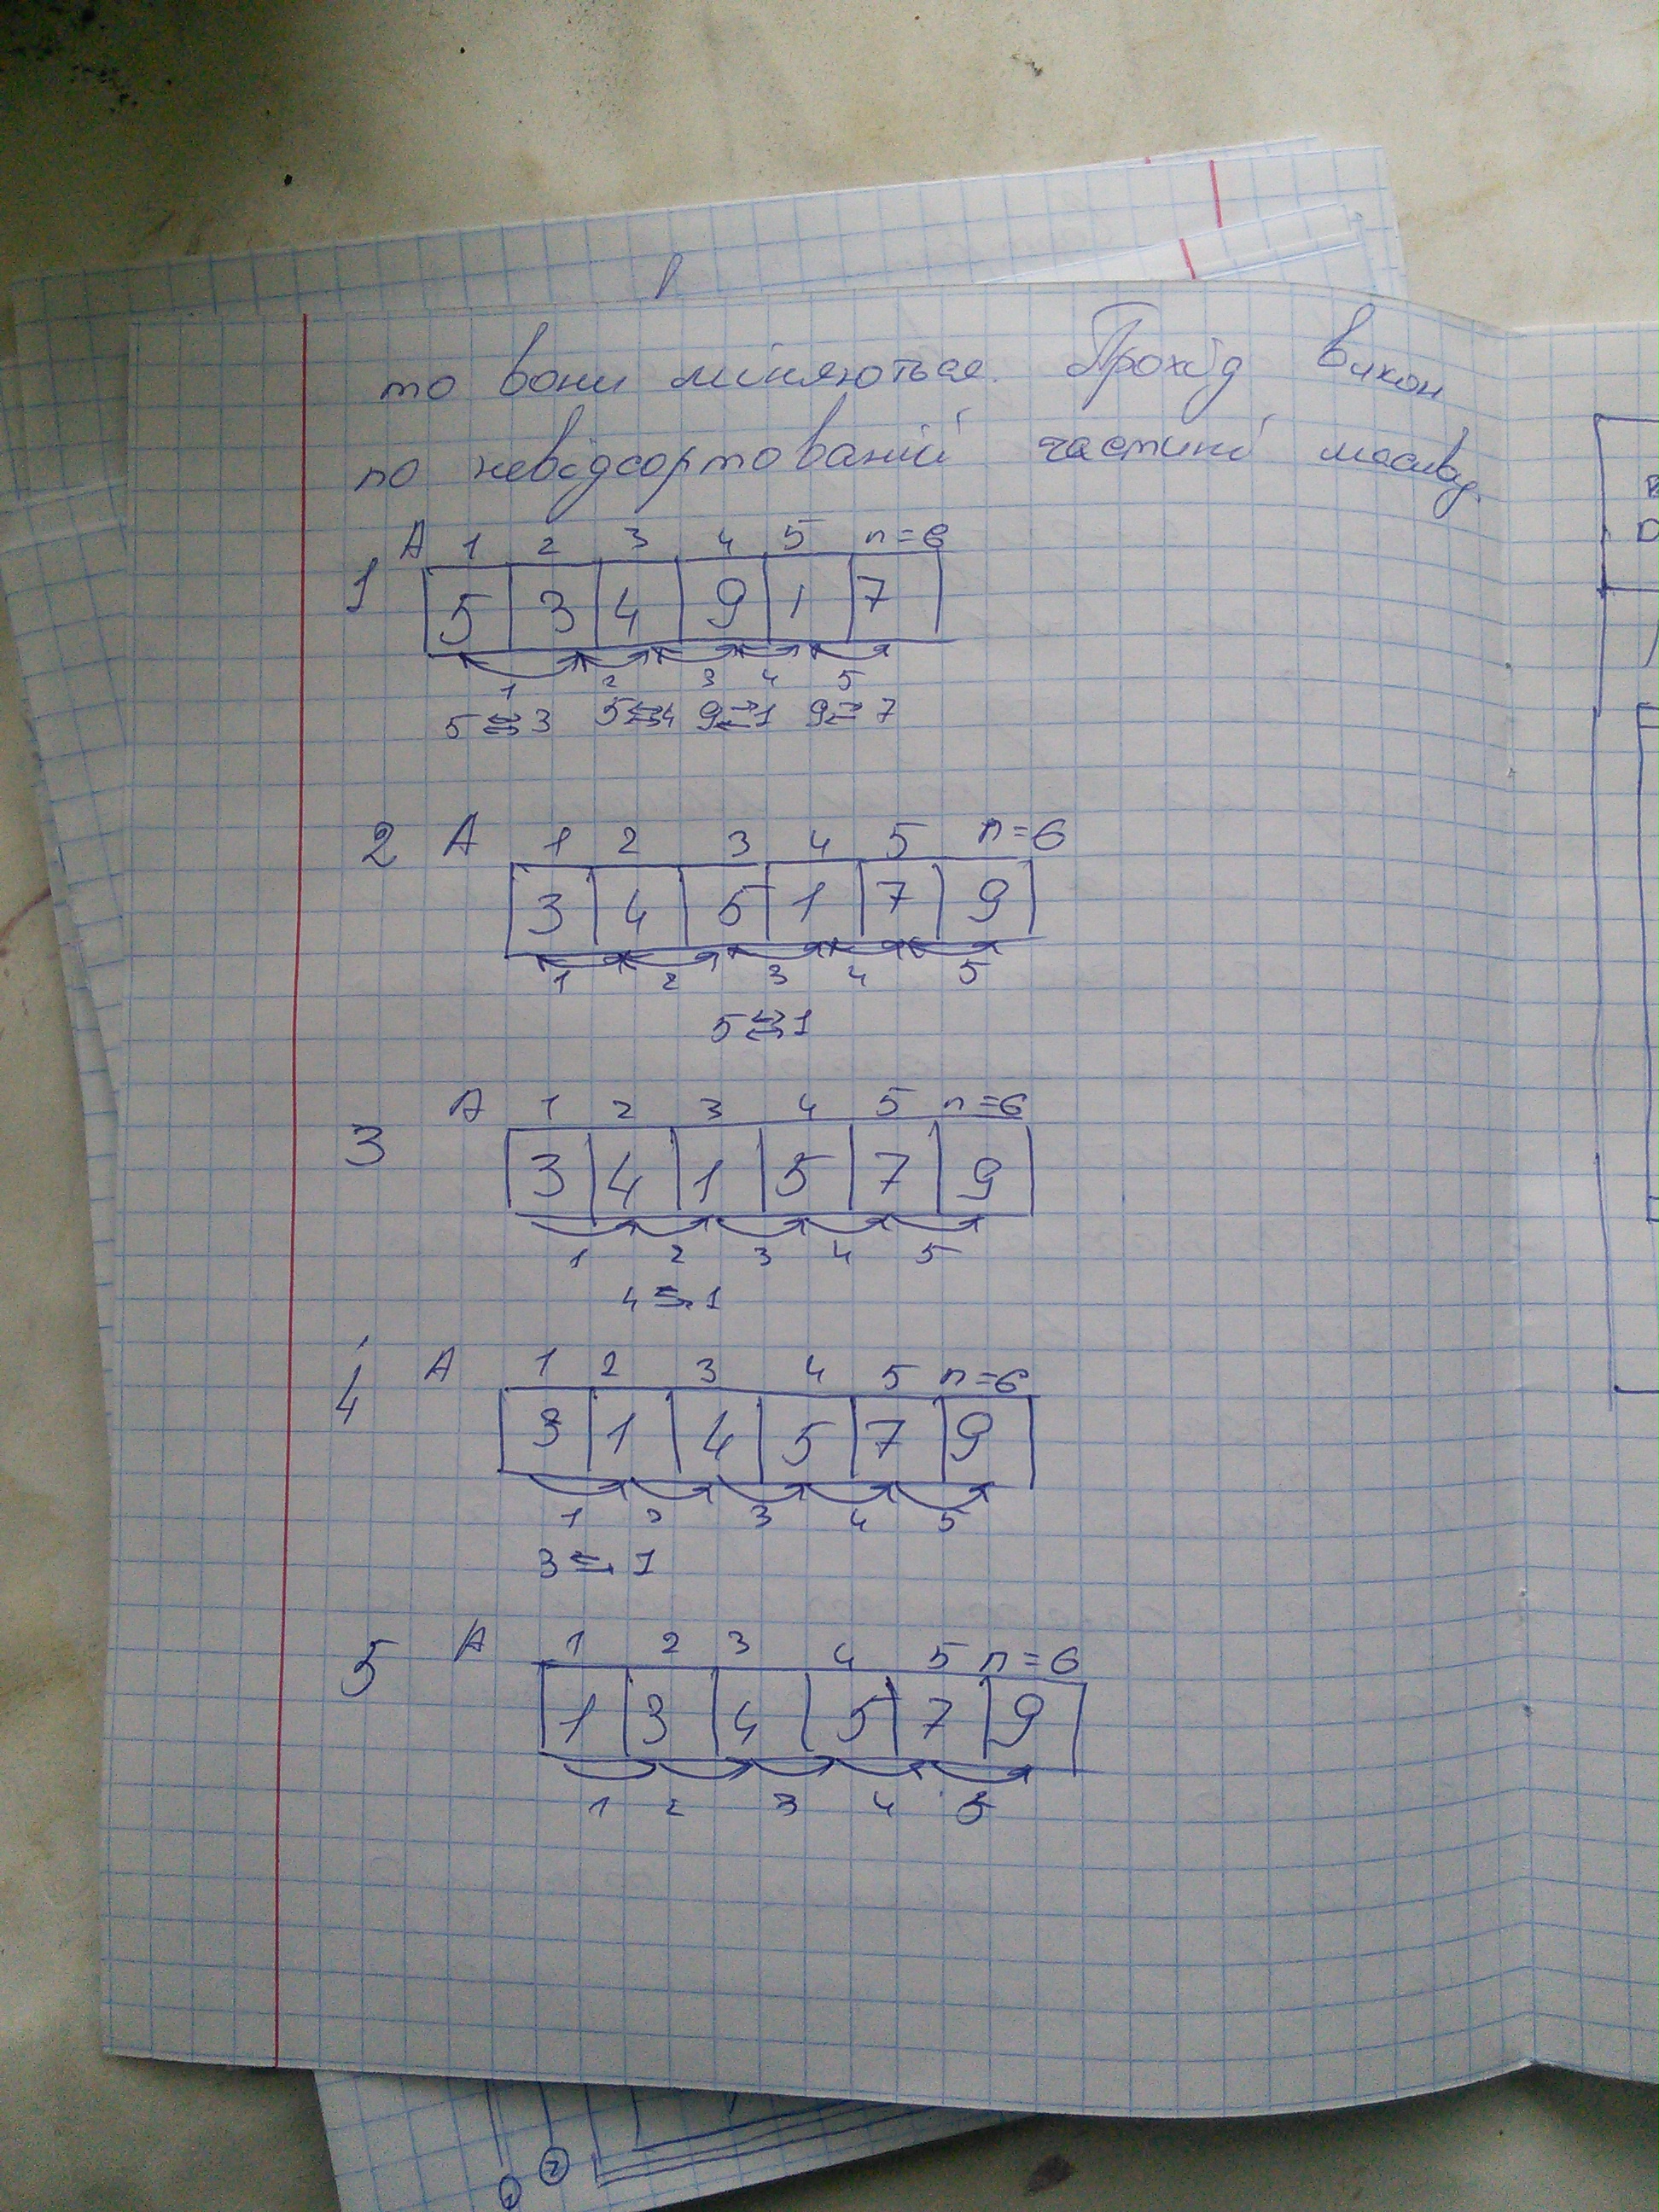 то вони міняються. Прохід викон
по невідсортованій частині масиву.
А 1 2 3 4 5 n=6
1 5 3 4 9 1 7
1 2 3 4 5
5⇆3 5⇆4 9⇆1 9⇆7
2 А 1 2 3 4 5 n=6
3 4 5 1 7 9
1 2 3 4 5
5⇆1
А 1 2 3 4 5 n=6
3 3 4 1 5 7 9
1 2 3 4 5
4⇆1
А 1 2 3 4 5 n=6
4 3 1 4 5 7 9
1 2 3 4 5
3⇆1
А 1 2 3 4 5 n=6
5 1 3 4 5 7 9
1 2 3 4 5